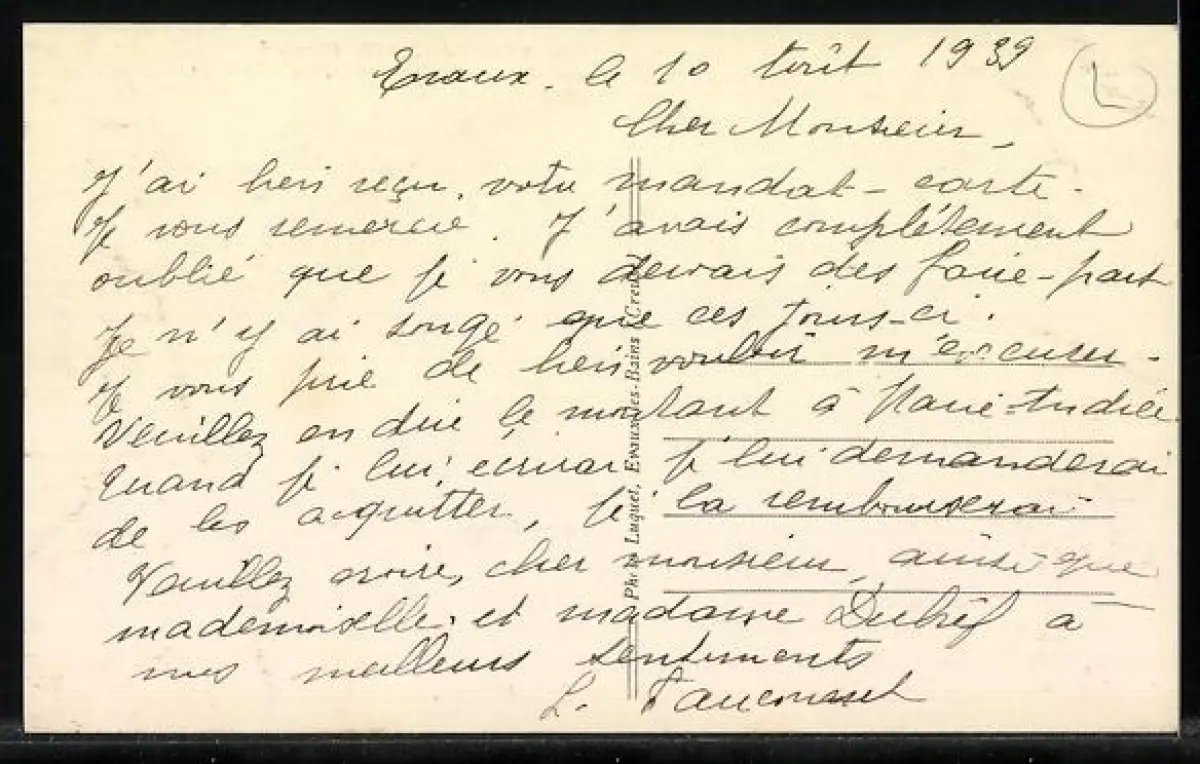 Evaux. le 10 Août 1939
L
Cher Monsieur,
J'ai bien reçu votre mandat-carte.
Je vous remercie. J'avais complètement
oublié que je vous devais des faire-part
Je n'y ai songé que ces jours-ci.
Je vous prie de bien vouloir m'excuser.
Veuillez en dire le montant à Marie-Andrée
Quand je lui écrirai je lui demanderai
de les acquitter, je la rembourserai
Veuillez croire, cher monsieur, ainsi que
mademoiselle et madame à
mes meilleurs sentiments
L.
Phot. Luquet, Evaux-les-Bains (Creuse)